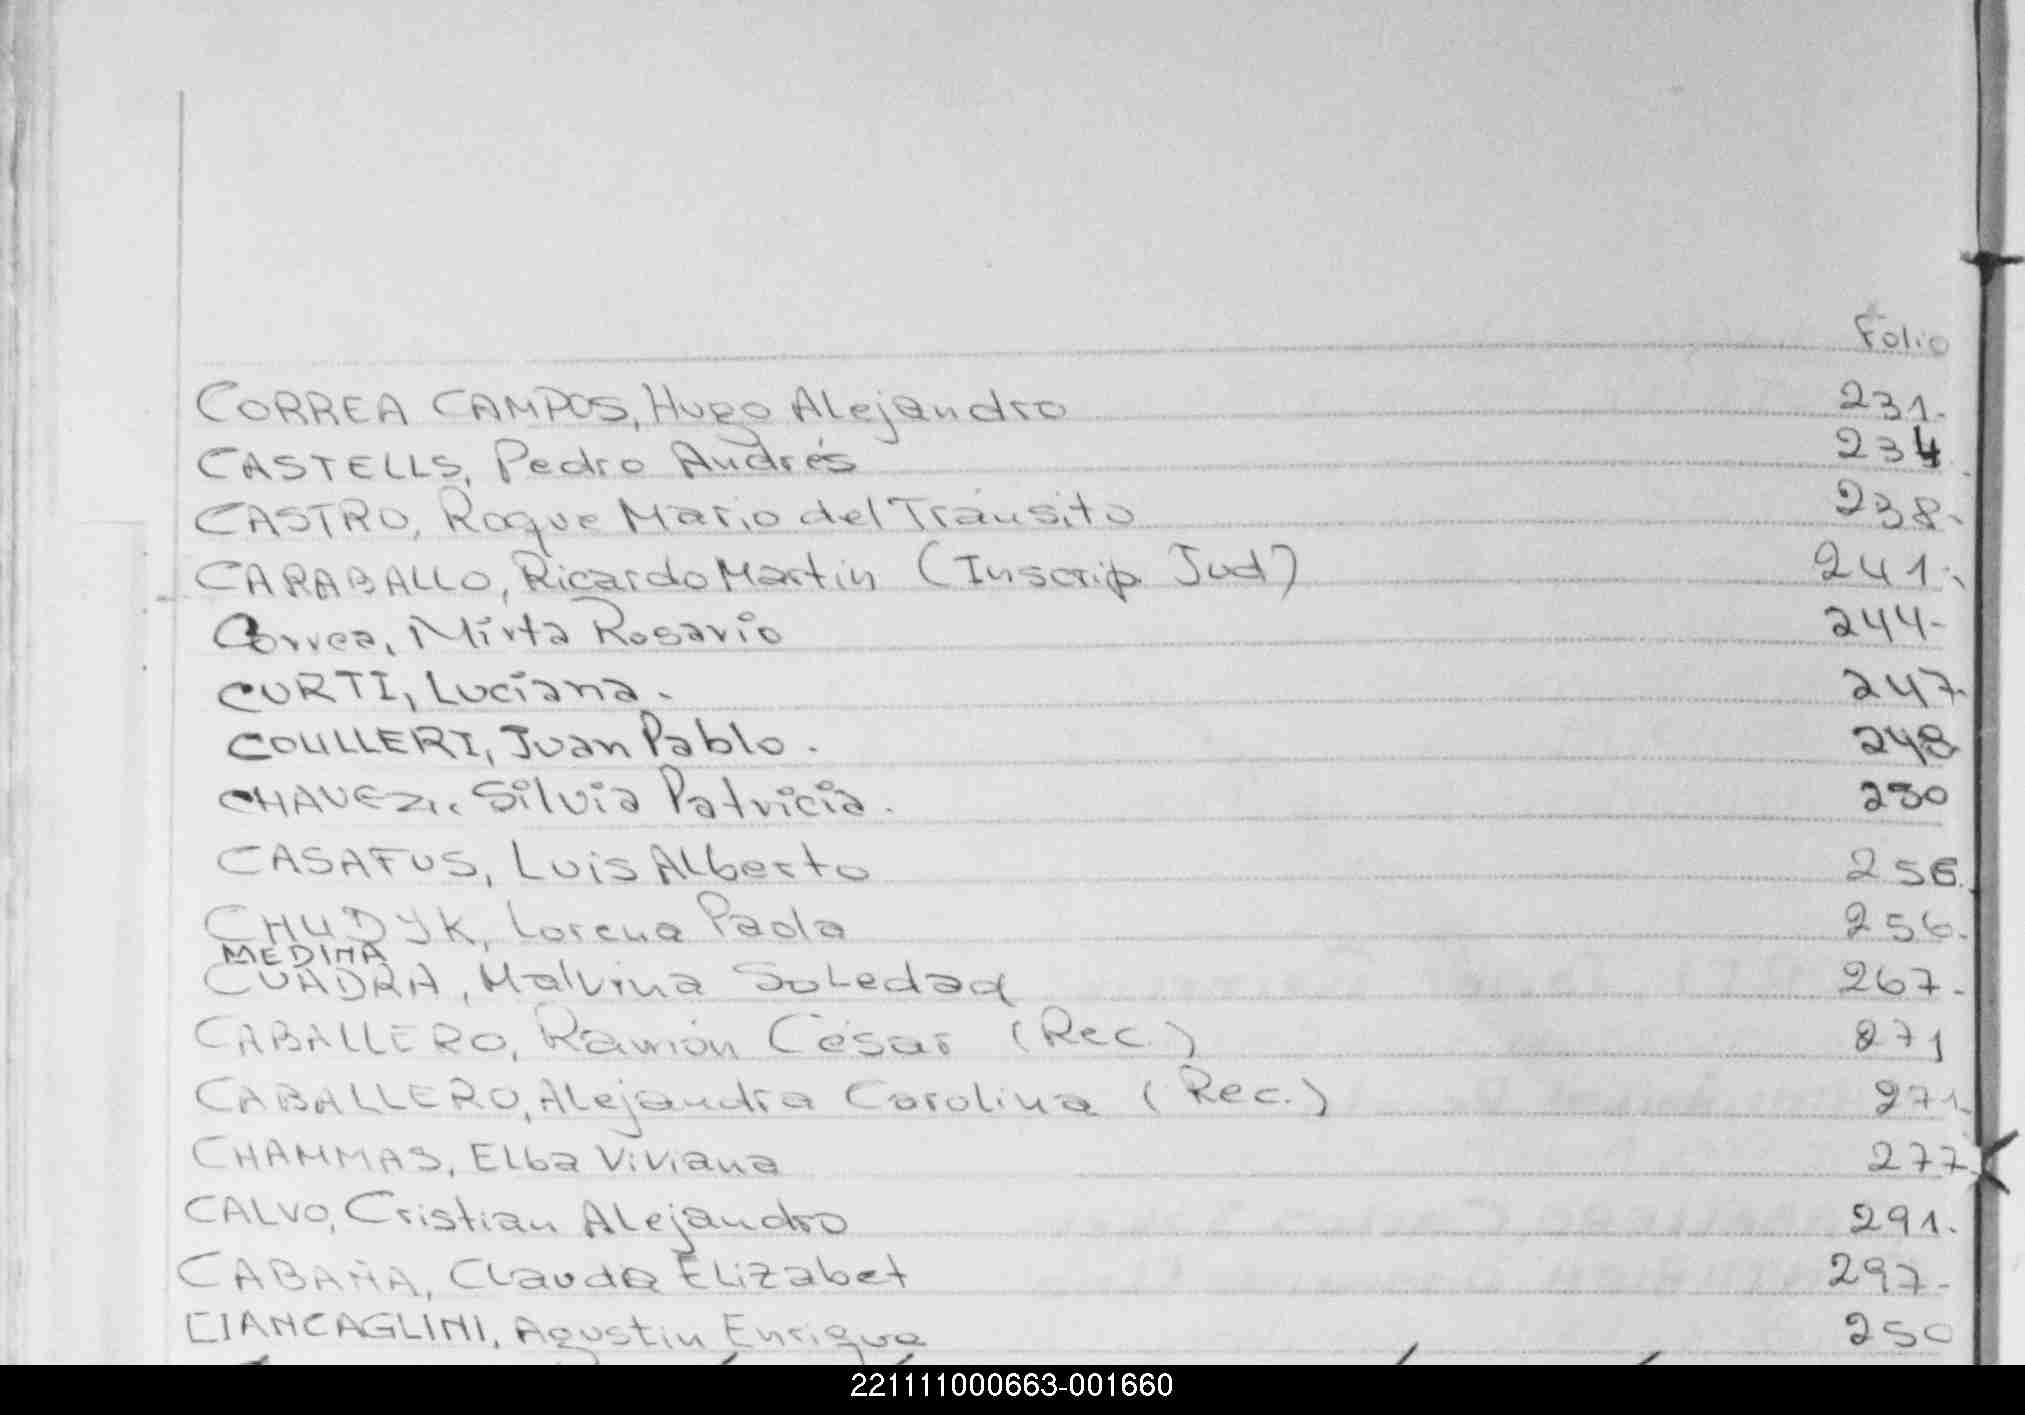 Folio
CORREA CAMPOS, Hugo Alejandro 231.
CASTELLS, Pedro Andrés 234
CASTRO, Roque Mario del Tránsito 238.
CARABALLO, Ricardo Martin (Inscrip Jud) 241.
Correa, Mirta Rosario 244-
CURTI, Luciana. 247.
COULLERI, Juan Pablo. 248
CHAVEZ, Silvia Patricia. 250
CASAFUS, Luis Alberto 256.
CHUDYK, Lorena Paola 256.
MEDINA
CUADRA, Malvina Soledad 267.
CABALLERO, Ramón César (Rec.) 271
CABALLERO, Alejandra Carolina (Rec.) 271.
CHAMMAS, Elba Viviana 277
CALVO, Cristian Alejandro 291.
CABAÑA, Clauda Elizabet 297-
CIANCAGLINI, Agustin Enrique 250
221111000663-001660